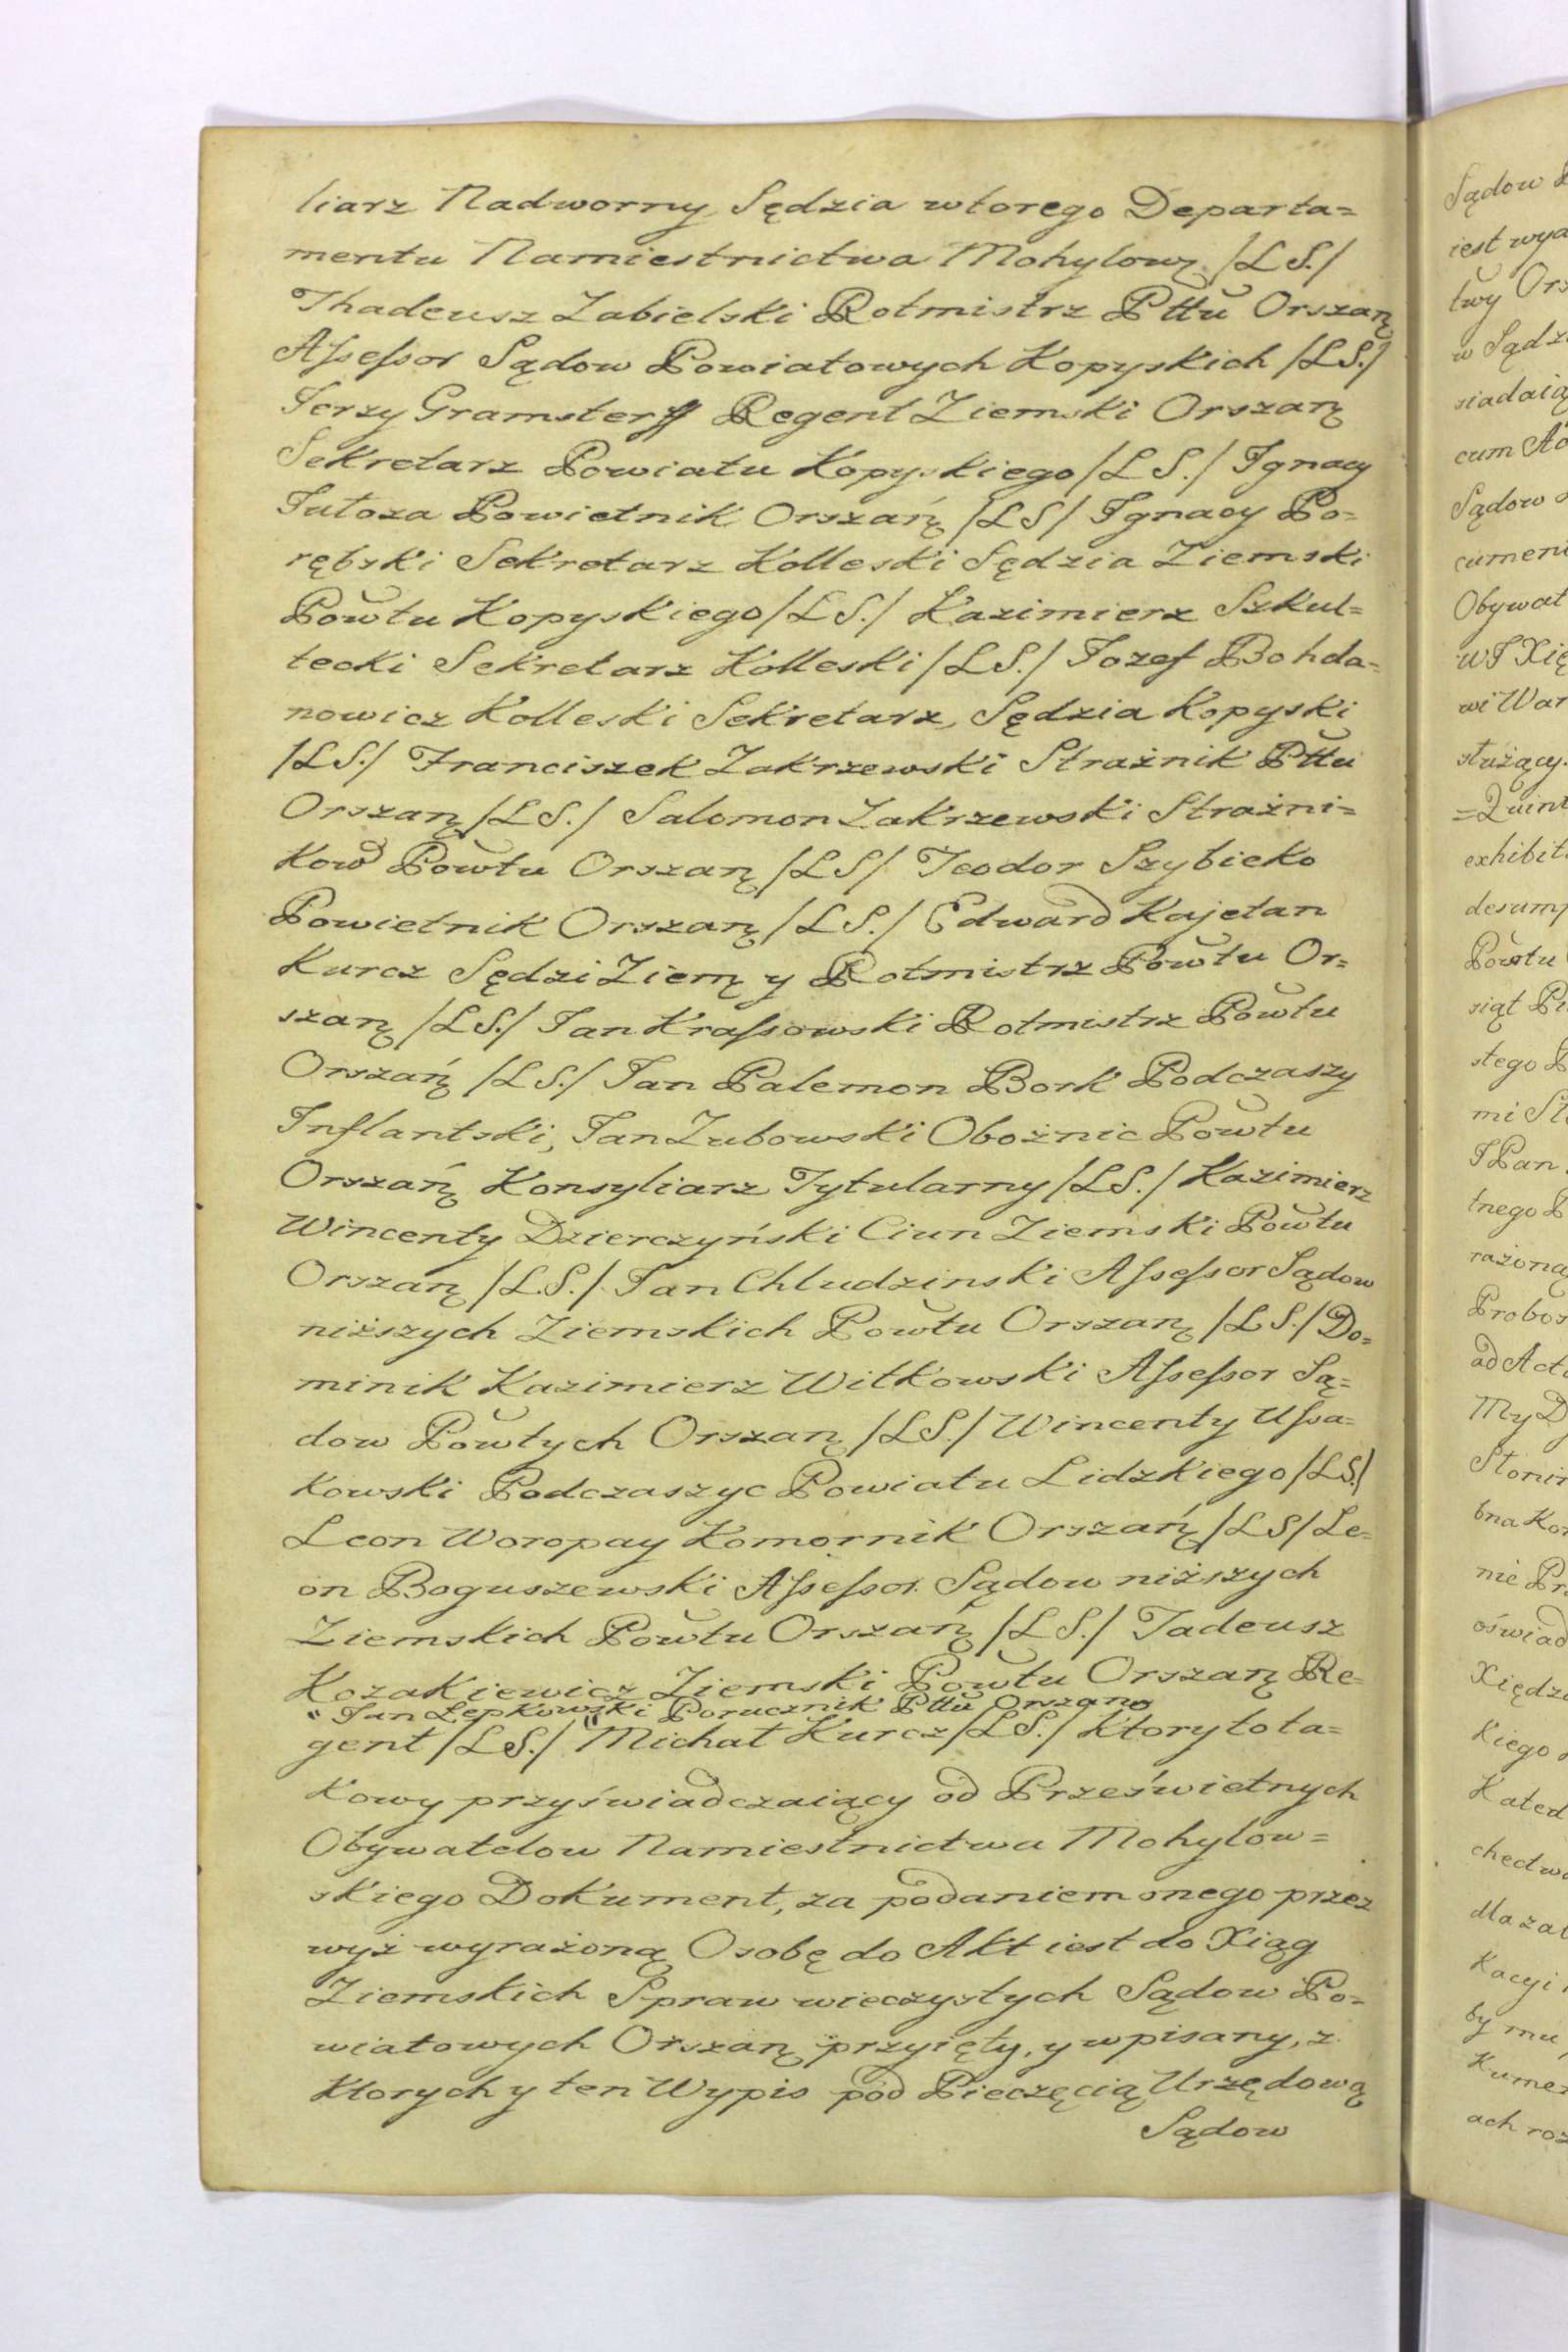 liarz Nadworny, Sędzia wtorego Departa=
mentu Namiestnictwa Mohylową /LS./
Thadeusz Zabielski Rotmistrz Pttu Orszaną
Aſseſsor Sądow Powiatowych Kopyskich /LS./
Jerzy Gramsterff Regent Ziemski Orszaną
Sekretarz Powiatu Kopyskiego /LS./ Ignacy
Sutoza Powietnik Orszańą /LS/ Ignacy Po=
rębski Sekretarz Kolleski Sędzia Ziemski
Powtu Kopyskiego /LS./ Kazimierz Szkul=
tecki Sekretarz Kolleski /LS./ Jozef Bohda=
nowicz Kolleski Sekretarz, Sędzia Kopyski
/LS./ Franciszek Zakrzewski Strażnik Pttu
Orszaną /LS./ Salomon Zakrzewski Strażni=
kow Powtu Orszaną /LS/ Teodor Szybicko
Powietnik Orszaną /LS./ Edward Kajetan
Kurcz Sędzi Ziemą y Rotmistrz Powtu Or=
szaną /LS./ Jan Kraſsowski Rotmistrz Powtu
Orszańą /LS./ Jan Palemon Bork Podczaszy
Inflantski, Jan Zubowski Oboźnic Powtu
Orszańą Konsyliarz Tytularny /LS./ Kazimierz
Wincenty Dzierczyński Ciun Ziemski Powtu
Orszaną /LS./ Jan Chludzinski Aſseſsor Sądow
niższych Ziemskich Powtu Orszaną /LS./ Do=
minik Kazimierz Witkowski Aſseſsor Są=
dow Powtych Orszaną /LS./ Wincenty Uſsa=
kowski Podczaszyc Powiatu Lidzkiego /LS./
Leon Woropay Komornik Orszańą /LS/ Le=
on Boguszewski Aſseſsor Sądow niższych
Ziemskich Powtu Orszańą /LS./ Tadeusz
Kozakiewicz Ziemski Powtu Orszaną Re=
" Jan Łepkowski Porucznik Pttu Orszano
gent /LS./ " Michał Kurcz /LS./ Ktory to ta=
kowy przyświadczaiący od Prześwietnych
Obywatelow Namiestnictwa Mohylow=
skiego Dokument, za podaniem onego przez
wyż wyrażoną Osobę do Akt iest do Xiąg
Ziemskich Spraw wieczystych Sądow Po=
wiatowych Orszaną przyięty, y wpisany, z
ktorych y ten Wypis pod Pieczęcią Urzędową
Sądow
Sądow
iest wyd
twy Ors
w Sądz
siadaią
cum Ac
Sądow
cumen
Obywat
wJ Xię
wi War
służący
=Quint
exhibit
desump
Powtu
siąt
stego
mi St
JPan
tnego
rażona
Probos
ad Acta
My
Słonin
bna Kor
nie Pr
oświad
Xiędz
kiego
Kated
chcd w
dla za
kacyi
by mu
kumen
ach roz